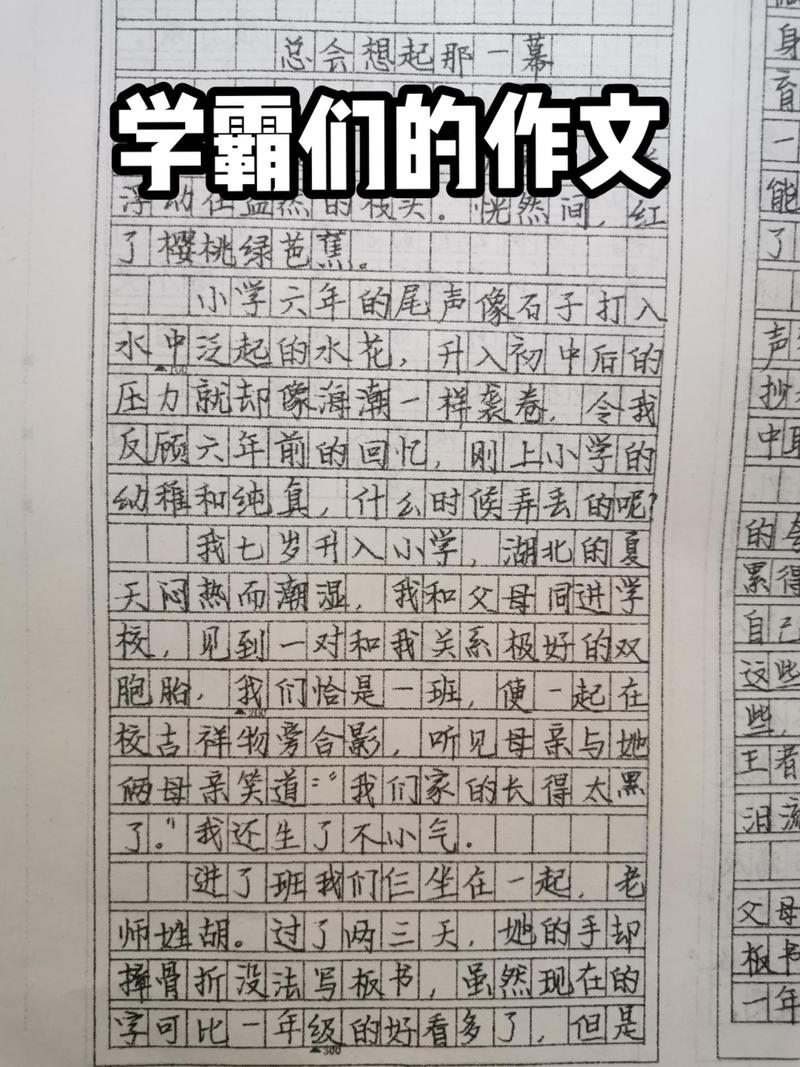 总会想起那一幕
学霸们的作文
浮动在盎然的枝头。恍然间，红
了樱桃绿芭蕉。
小学六年的尾声像石子打入
水中泛起的水花，升入初中后的
压力就却像海潮一样袭卷，令我
反顾六年前的回忆，刚上小学的
幼稚和纯真，什么时候弄丢的呢？
我七岁升入小学，湖北的夏
天闷热而潮湿，我和父母同进学
校，见到一对和我关系极好的双
胞胎，我们恰是一班，便一起在
校吉祥物旁合影，听见母亲与她
俩母亲笑道："我们家的长得太黑
了。"我还生了不小气。
进了班我们仨坐在一起，老
师姓胡。过了两三天，她的手却
摔骨折没法写板书，虽然现在的
字可比一年级的好看多了，但是
300
身
育
一
能
了
声
抄
中
的
累得
自己
这些
些，
王者
泪流
父母
板书
一年